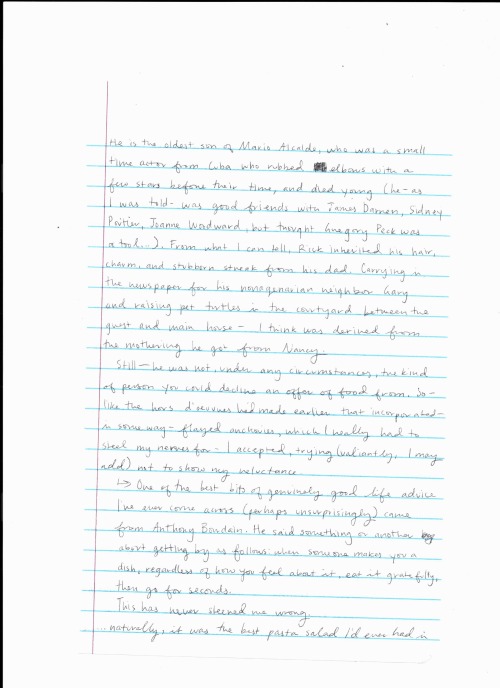 He is the oldest son of Mario Alcalde, who was a small
time actor from Cuba who rubbed elbows with a
few stars before their time, and died young (he - as
I was told - was good friends with James Darren, Sidney
Poitier, Joanne Woodward, but thought Gregory Peck was
a tool...). From what I can tell, Rick inherited his hair,
charm, and stubborn streak from his dad. Carrying in
the newspaper for his nonagenarian neighbor Gary
and raising pet turtles in the courtyard between the
guest and main house - I think was derived from
the mothering he got from Nancy.
Still - he was not, under any circumstances, the kind
of person you could decline an offer of food from. So -
like the hors d'oeuvres he'd made earlier that incorporated -
in some way - flayed anchovies, which I really had to
steel my nerves for - I accepted, trying (valiantly, I may
add) not to show my reluctance
↳ One of the best bits of genuinely good life advice
I've ever come across (perhaps unsurprisingly) came
from Anthony Bourdain. He said something or another
about getting by as follows: when someone makes you a
dish, regardless of how you feel about it, eat it gratefully,
then go for seconds.
This has never steered me wrong.
...naturally, it was the best pasta salad I'd ever had in